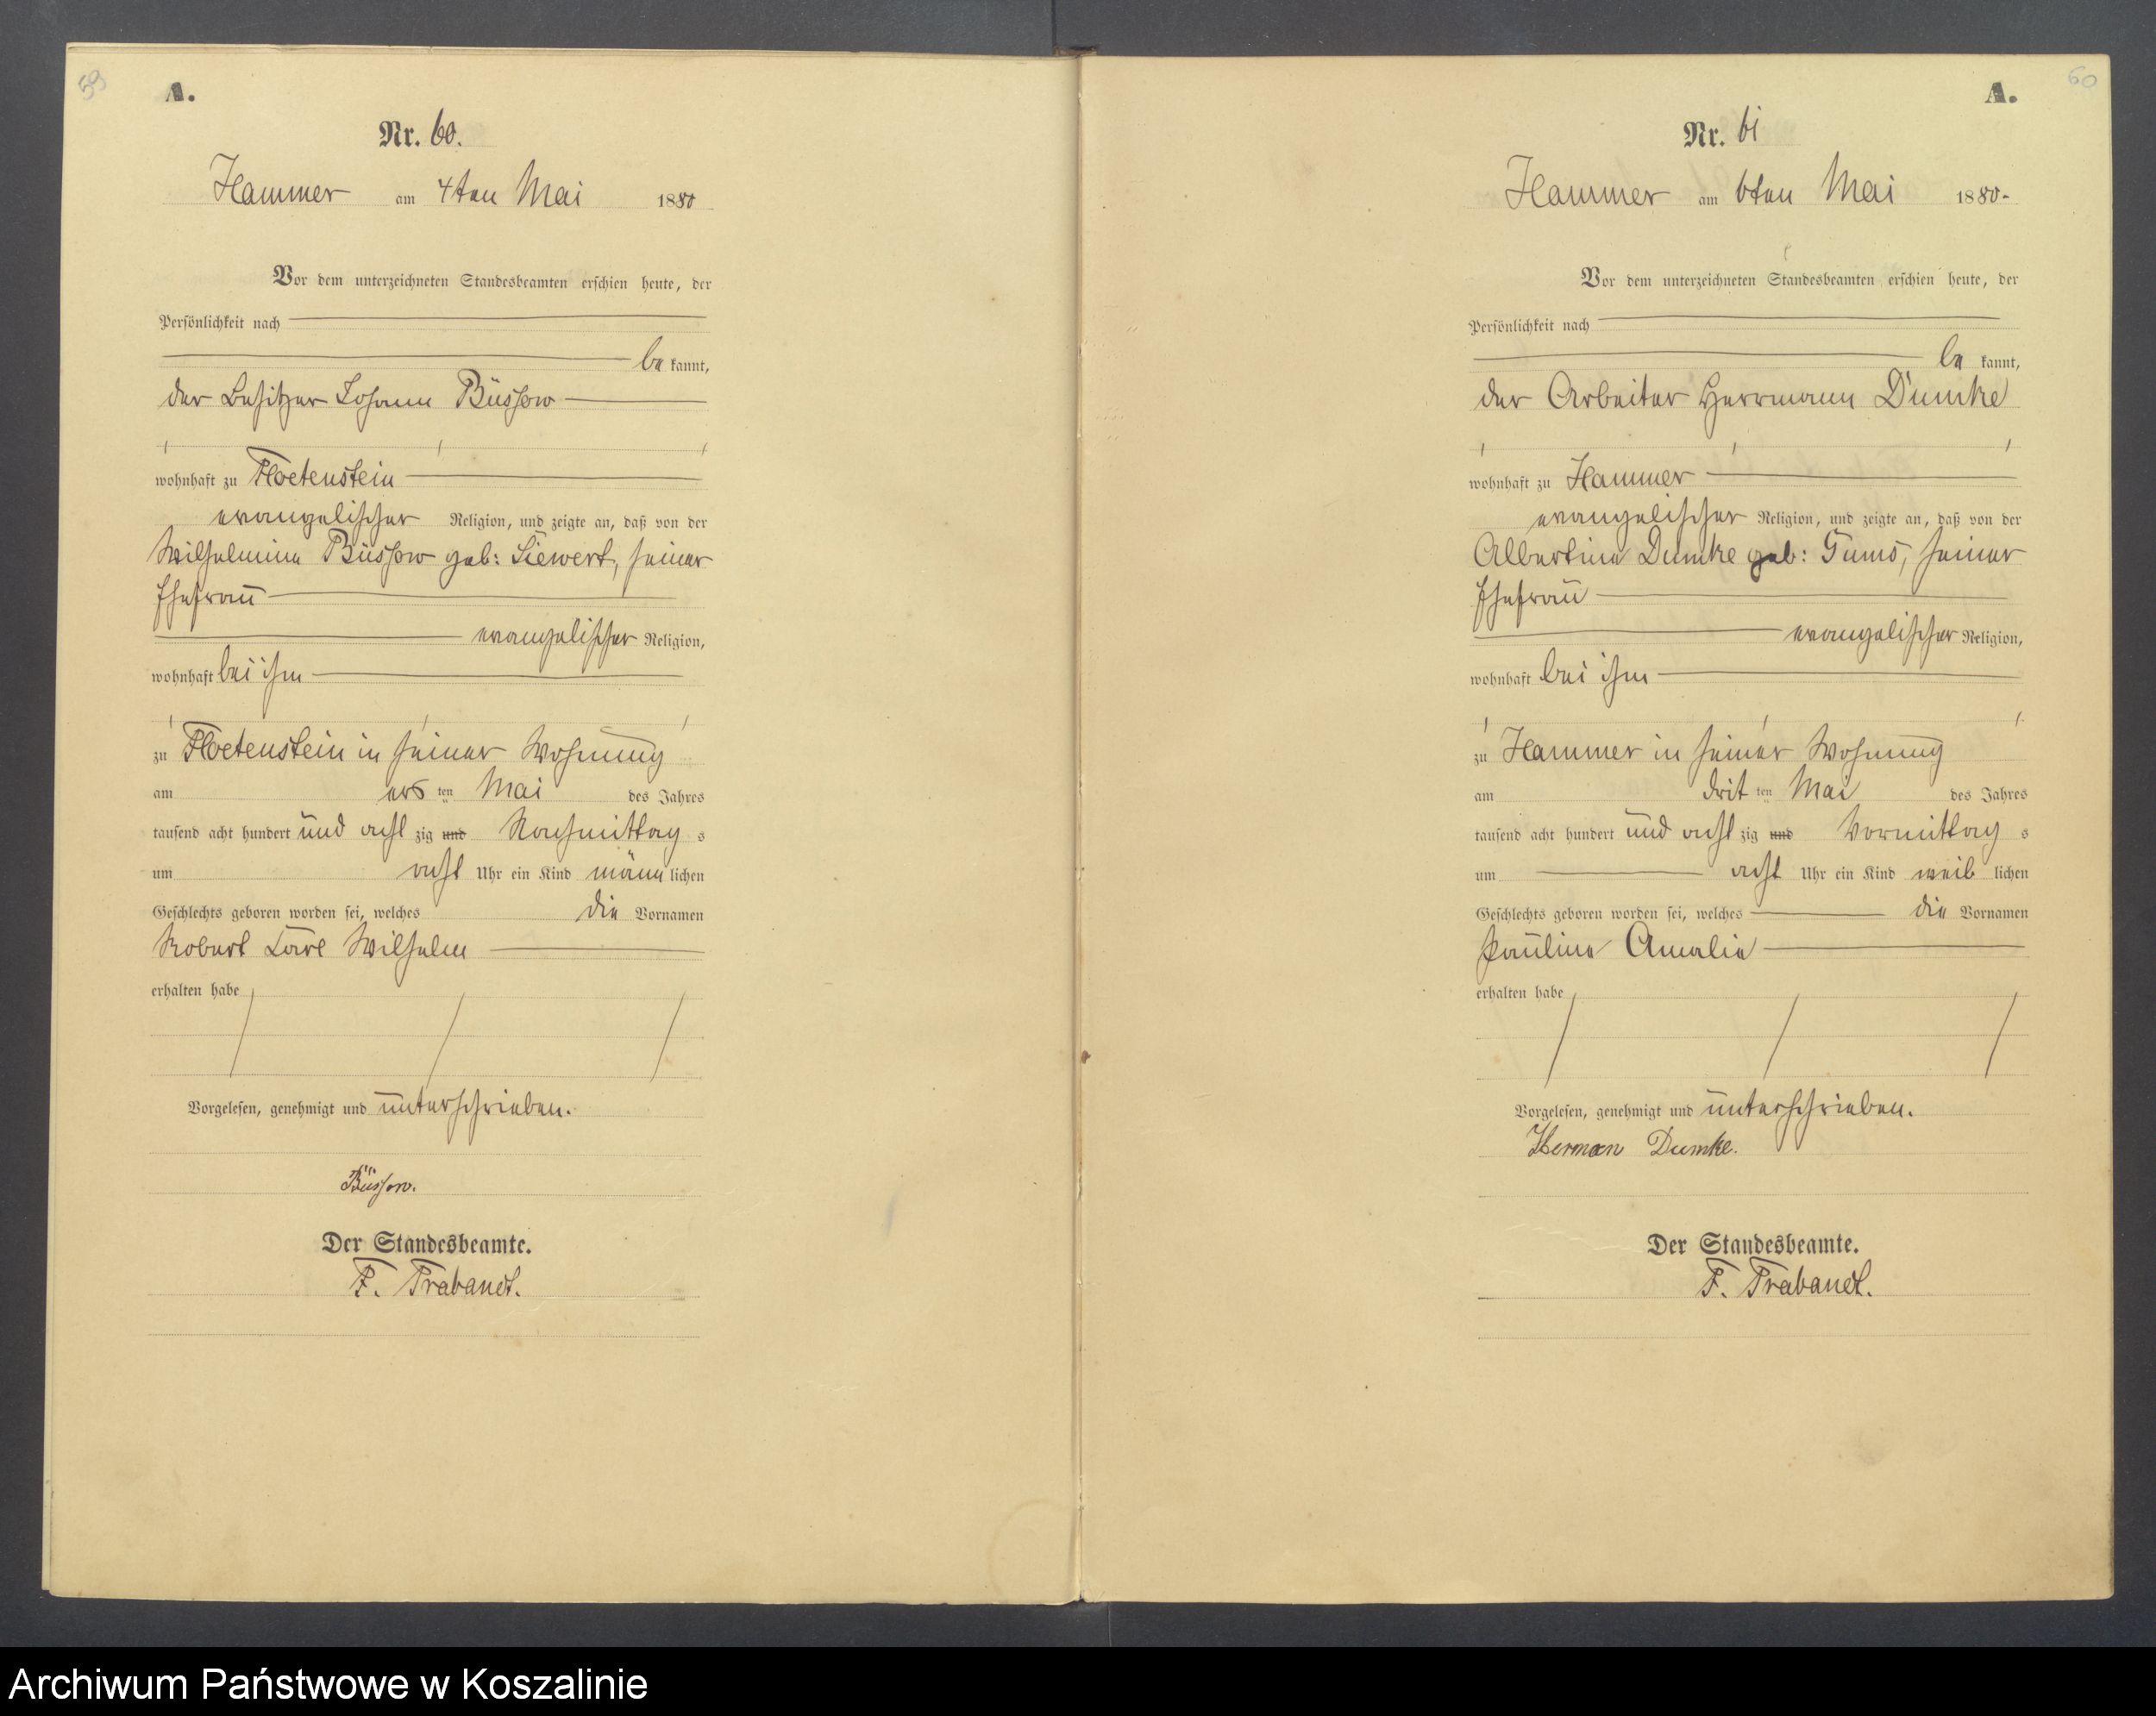 59
A.
Nr. 60.
Hammer am 4ten Mai 1880
Vor dem unterzeichneten Standesbeamten erschien heute, der
Persönlichkeit nach
be kannt,
der Besitzer Johann Büssow
wohnhaft zu Floetenstein
evangelischer Religion, und zeigte an, daß von der
Wilhelmine Büssow geb: Siewert, seiner
Ehefrau
evangelischer Religion,
wohnhaft bei ihm
zu Floetenstein in seiner Wohnung
am ers ten Mai des Jahres
tausend acht hundert und acht zig und Nachmittag s
um acht Uhr ein Kind männ lichen
Geschlechts geboren worden sei, welches die Vornamen
Robert Carl Wilhelm
erhalten habe
Vorgelesen, genehmigt und unterschrieben.
Büssow.
Der Standesbeamte.
F. Trabandt.
60
A.
Nr. 61
Hammer am 6ten Mai 1880-
Vor dem unterzeichneten Standesbeamten erschien heute, der
Persönlichkeit nach
be kannt,
der Arbeiter Herrmann Dumke
wohnhaft zu Hammer
evangelischer Religion, und zeigte an, daß von der
Albertine Dumke geb: Gums, seiner
Ehefrau
evangelischer Religion,
wohnhaft bei ihm
zu Hammer in seiner Wohnung
am drit ten Mai des Jahres
tausend acht hundert und acht zig und Vormittag s
um acht Uhr ein Kind weib lichen
Geschlechts geboren worden sei, welches die Vornamen
Pauline Amalie
erhalten habe
Vorgelesen, genehmigt und unterschrieben.
Herman Dumke.
Der Standesbeamte.
F. Trabandt.
Archiwum Państwowe w Koszalinie